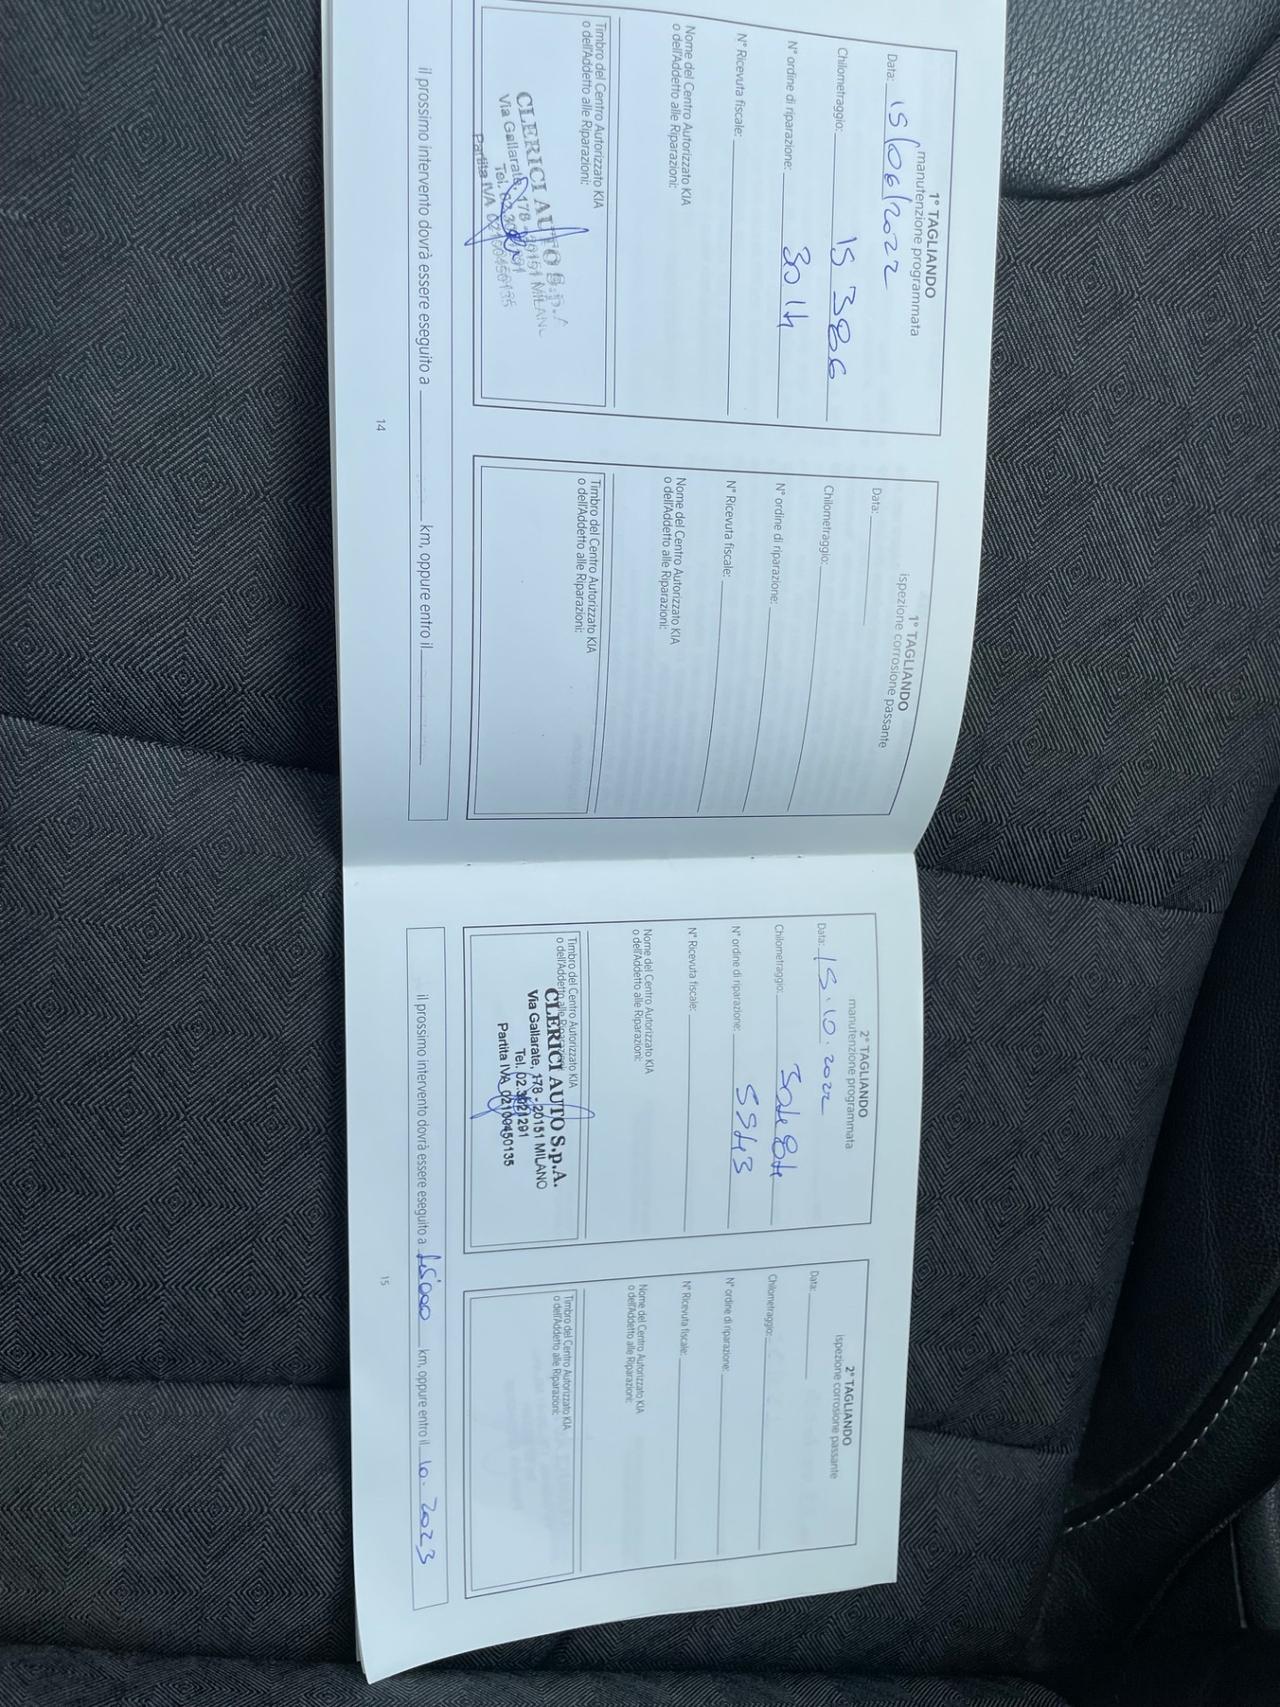 1° TAGLIANDO
manutenzione programmata
Data: 15/06/2022
Chilometraggio: 15386
N° ordine di riparazione: 3014
N° Ricevuta fiscale:
Nome del Centro Autorizzato KIA
o dell'Addetto alle Riparazioni:
Timbro del Centro Autorizzato KIA
o dell'Addetto alle Riparazioni:
CLERICI AUTO S.p.A
Via Gallarate, 178 - 20151 MILANO
Tel.
Partita IVA 02100450135
1° TAGLIANDO
ispezione corrosione passante
Data:
Chilometraggio:
N° ordine di riparazione:
N° Ricevuta fiscale:
Nome del Centro Autorizzato KIA
o dell'Addetto alle Riparazioni:
Timbro del Centro Autorizzato KIA
o dell'Addetto alle Riparazioni:
il prossimo intervento dovrà essere eseguito a km, oppure entro il
14
2° TAGLIANDO
manutenzione programmata
Data: 15.10.2022
Chilometraggio: 30484
N° ordine di riparazione: 5543
N° Ricevuta fiscale:
Nome del Centro Autorizzato KIA
o dell'Addetto alle Riparazioni:
Timbro del Centro Autorizzato KIA
o dell'Addetto alle Riparazioni:
CLERICI AUTO S.p.A.
Via Gallarate, 178 - 20151 MILANO
Tel. 02.3021291
Partita IVA 02100450135
2° TAGLIANDO
ispezione corrosione passante
Data:
Chilometraggio:
N° ordine di riparazione:
N° Ricevuta fiscale:
Nome del Centro Autorizzato KIA
o dell'Addetto alle Riparazioni:
Timbro del Centro Autorizzato KIA
o dell'Addetto alle Riparazioni:
il prossimo intervento dovrà essere eseguito a 45'000 km, oppure entro il 10. 2023
15